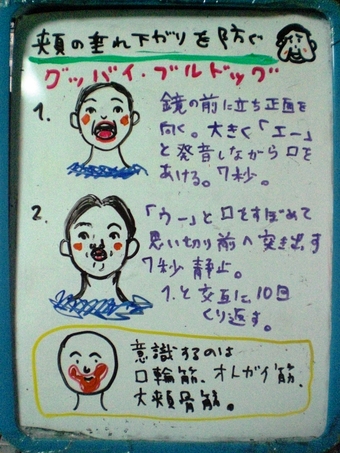 頬の垂れ下がりを防ぐ
グッバイ・ブルドッグ
1.
鏡の前に立ち正面を
向く。大きく「エー」
と発音しながら口を
あける。7秒。
2.
「ウー」と口をすぼめて
思い切り前へ突き出す
7秒静止。
1.と交互に10回
くり返す。
意識するのは
口輪筋、オトガイ筋、
大頬骨筋。